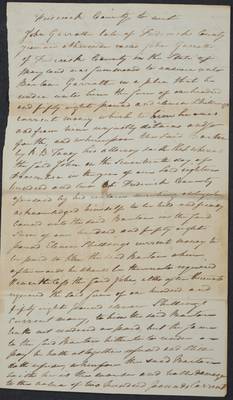 Frederick County to wit
John Garrott late of Frederick County
yeoman otherwise called John Garrott
of Frederick County in the State of
Maryland was summoned to answer unto
Barton Garrott in a plea that he
render unto him the sum of one hundred
and fifty eight pounds and eleven shillings
current money which he owes him
and from him unjustly detains
for that, and whereupon the said Barton
by R B Taney his attorney saith that where
the said John on the seventeenth day of
in the year of our Lord eighteen
hundred and two at Frederick County
aforesaid by his
acknowledged himself to be held and firmly
bound unto the said Barton in the said
sum of one hundred and fifty eight
pounds eleven shillings current money to
be paid to the said Barton when
afterwards he should be thereunto required
Nevertheless the said John although
required the said sum of one hundred and
fifty eight pounds shillings
current money to him the said Barton
hath not rendered or paid but the same
to the said Barton hitherto to render or
pay he hath altogether refused and still
doth refuse whereupon the said Barton
saith he is the worse and hath damage
to the value of two hundred pounds current